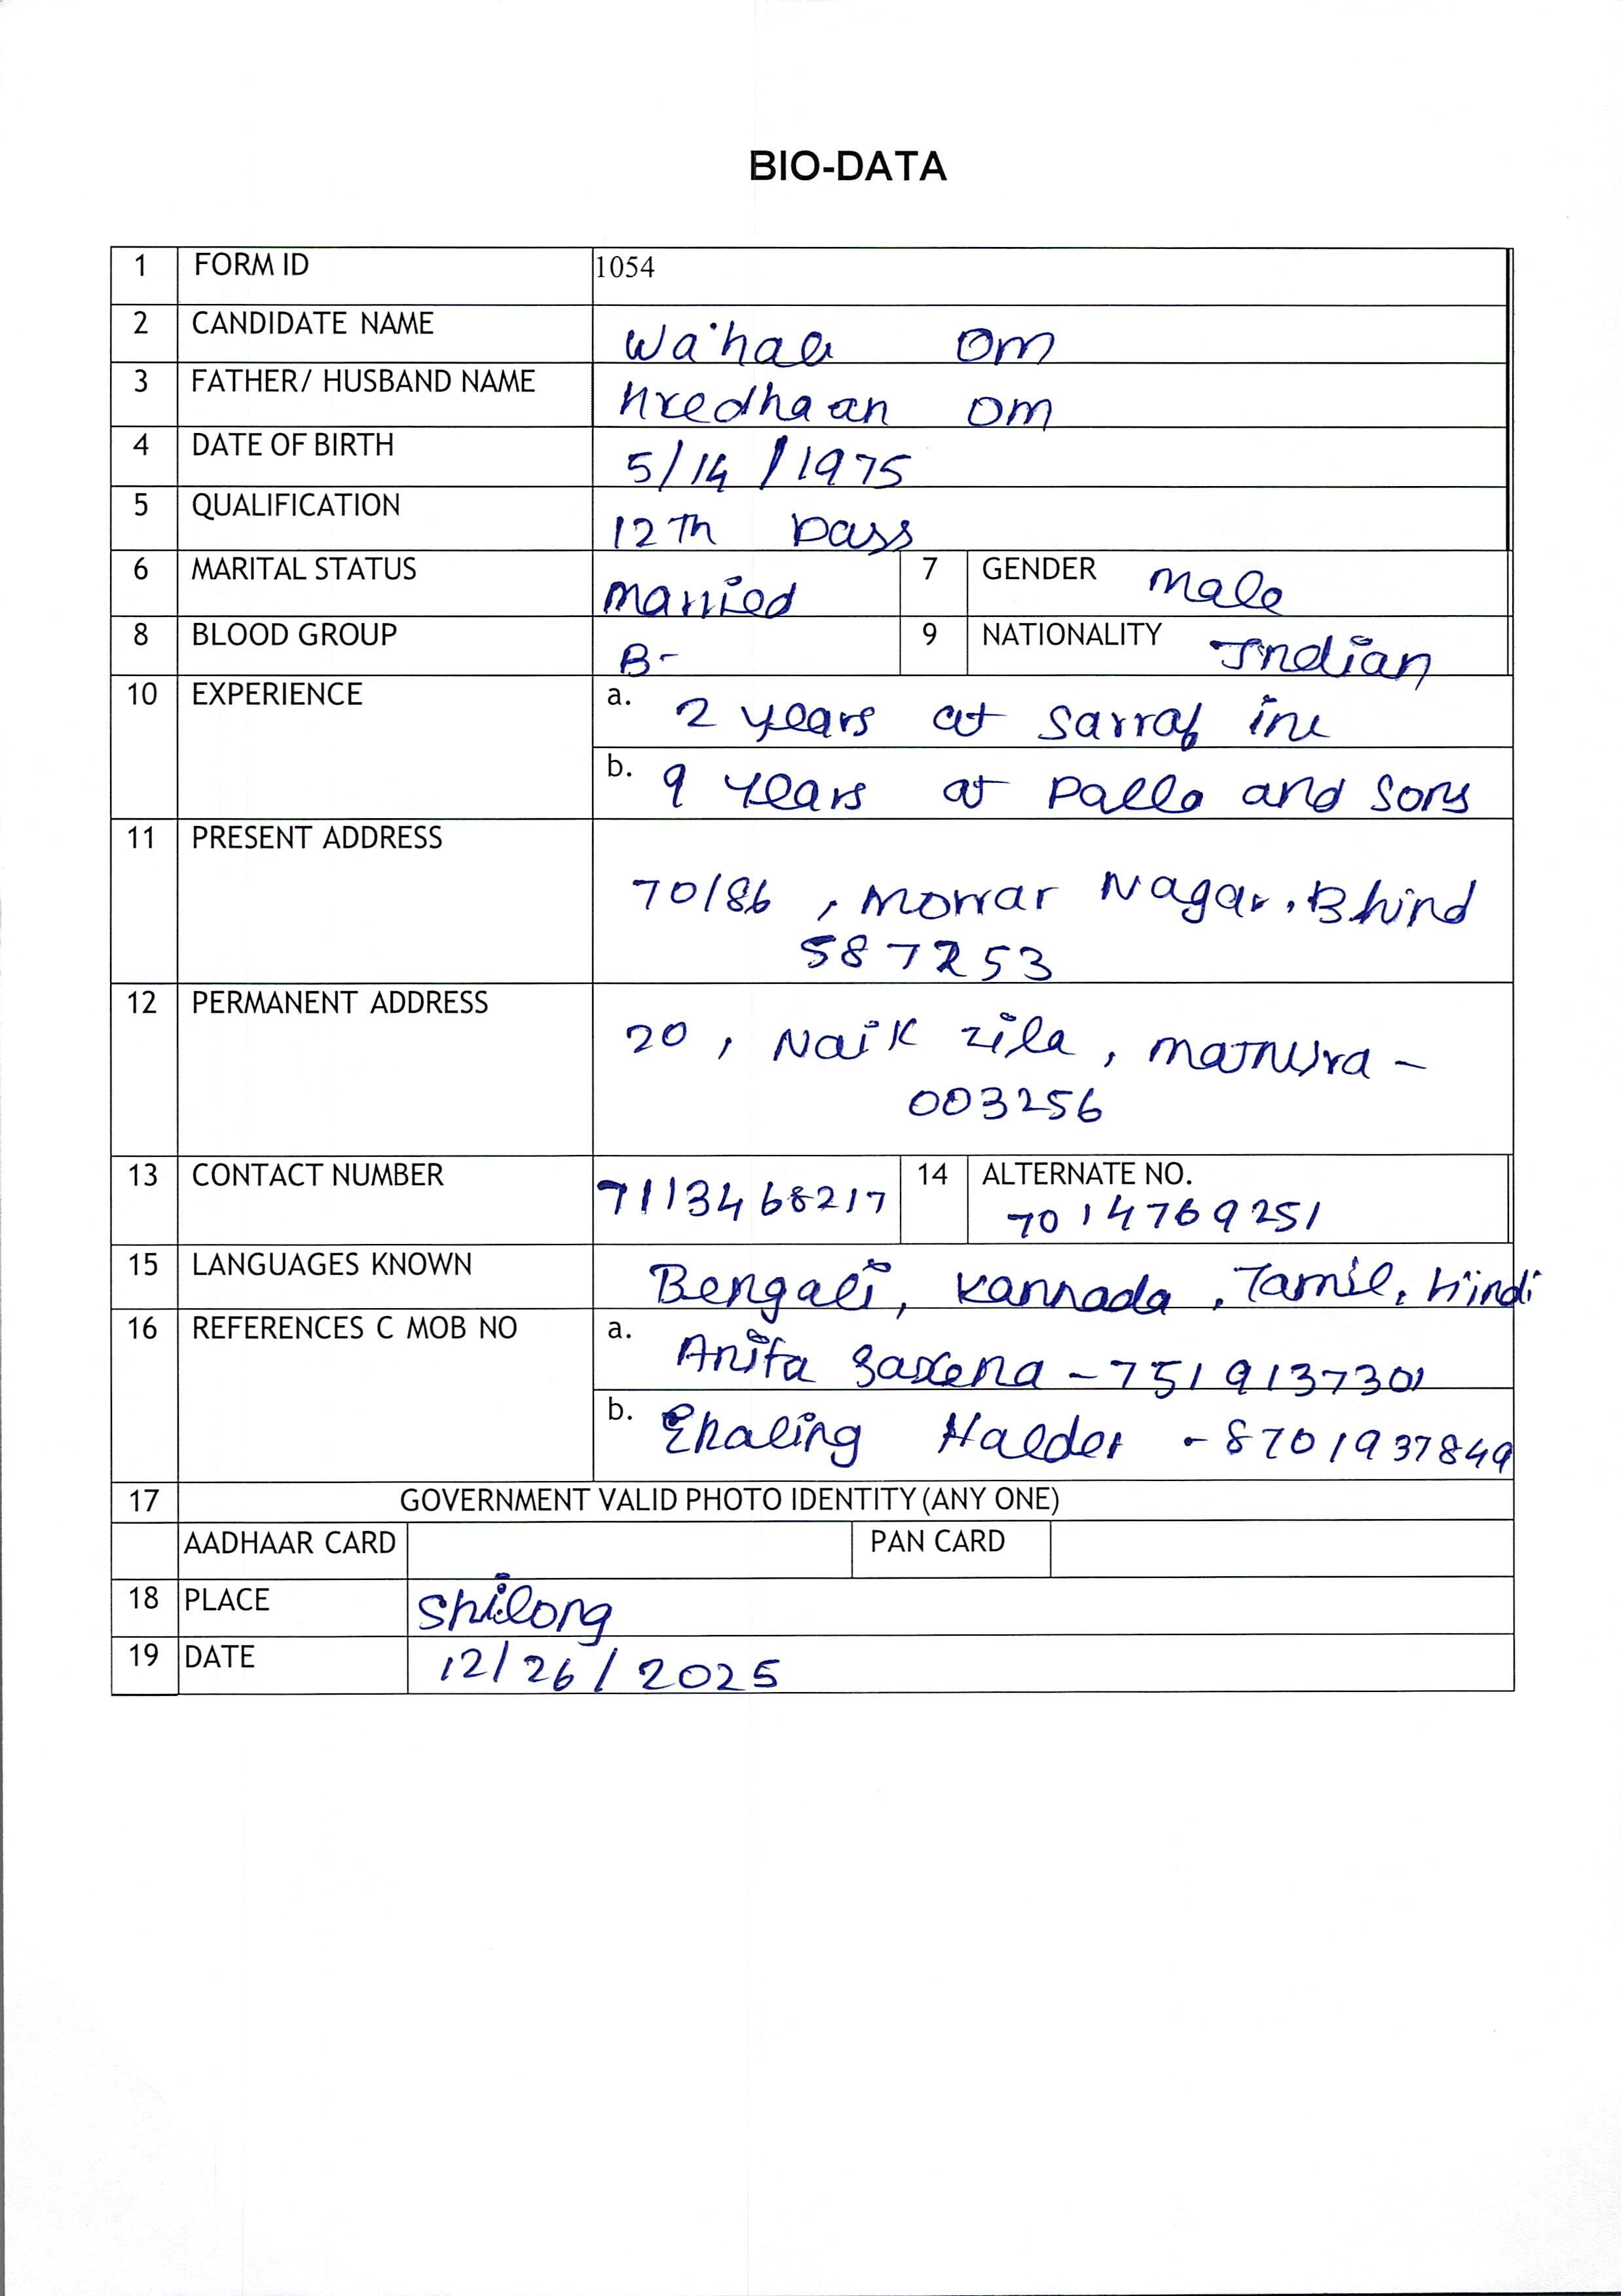 BIO-DATA
1 FORM ID 1054
2 CANDIDATE NAME Om
3 FATHER/ HUSBAND NAME Hredhaan Om
4 DATE OF BIRTH 5/14/1975
5 QUALIFICATION 12Th pass
6 MARITAL STATUS married 7 GENDER male
8 BLOOD GROUP B- 9 NATIONALITY Indian
10 EXPERIENCE a. 2 years at Sarraf inc
b. 9 years at Palla and Sons
11 PRESENT ADDRESS
70/86, Morrar Nagar, Bhind
587253
12 PERMANENT ADDRESS
20, Naik zila, mathura -
003256
13 CONTACT NUMBER 7113468217 14 ALTERNATE NO.
7014769251
15 LANGUAGES KNOWN Bengali, Kannada, Tamil, Hindi
16 REFERENCES C MOB NO a. Anita Saxena - 7519137301
b. Ekaling Halder - 8701937849
17 GOVERNMENT VALID PHOTO IDENTITY (ANY ONE)
AADHAAR CARD PAN CARD
18 PLACE Shilong
19 DATE 12/26/2025